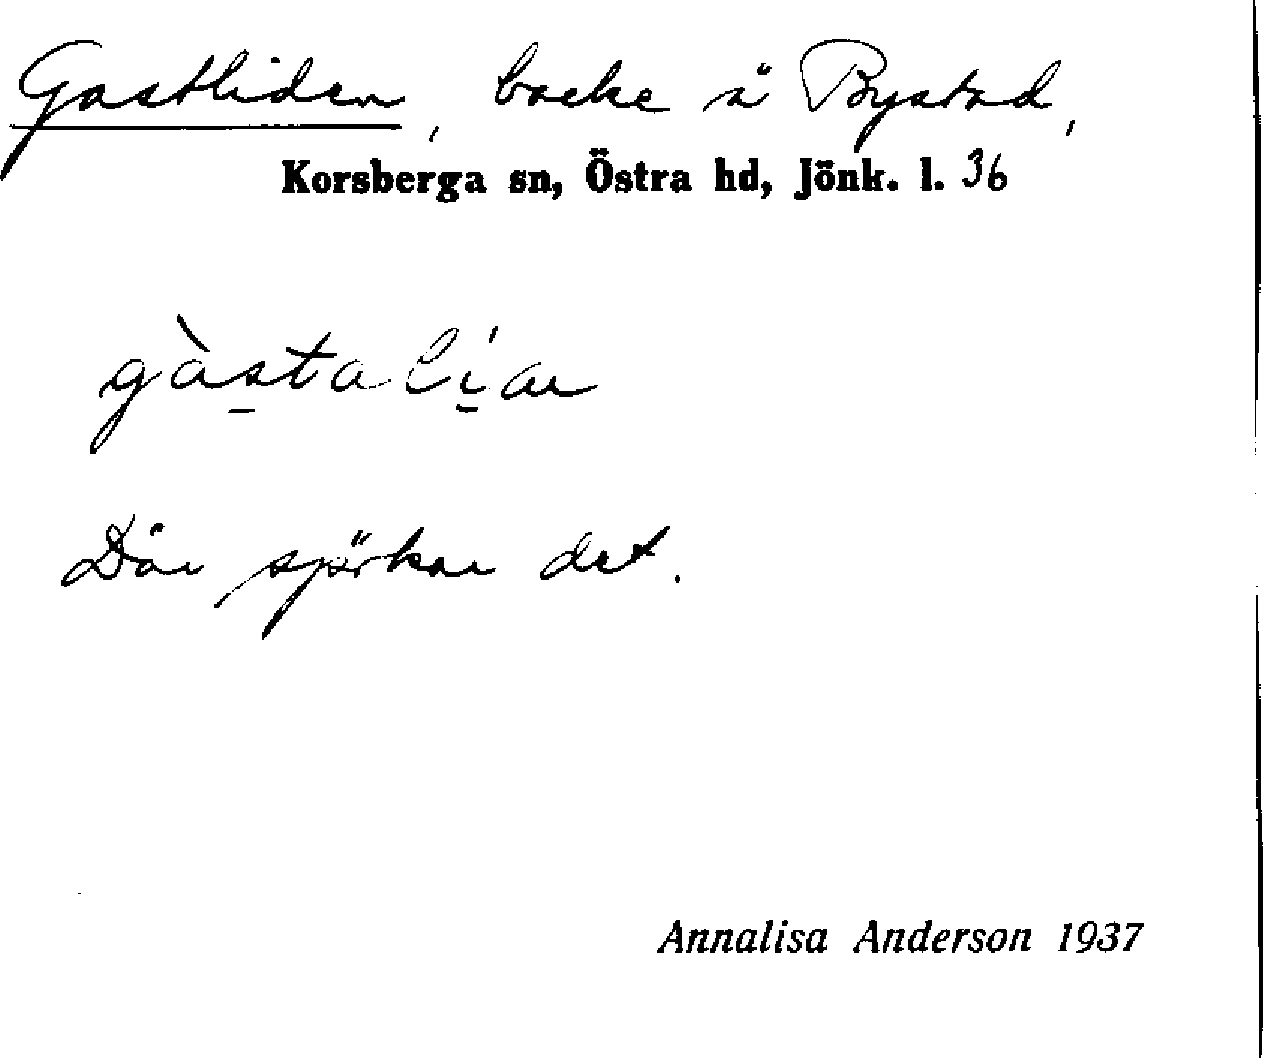 Gastliden, backe å Bystad,
Korsberga sn, Östra hd, Jönk. l. 36
gàstalíar
Där spökar det.
Annalisa Anderson 1937